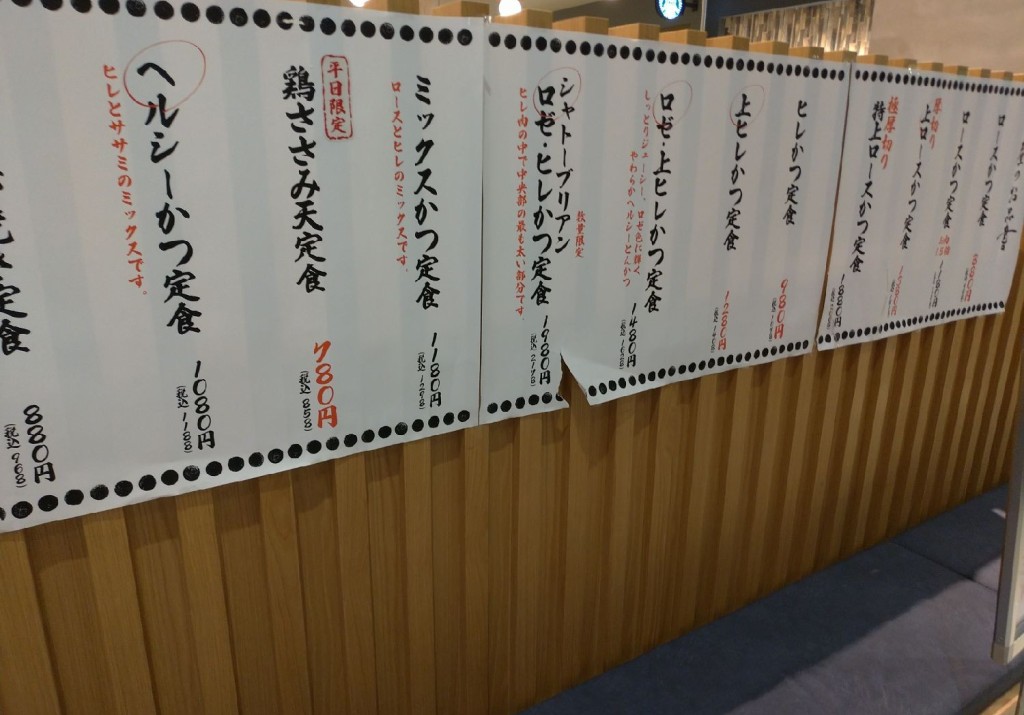 ロースかつ定食
ロースかつ定食
厚切り
上ロースかつ定食
極厚切り
特上ロースかつ定食
1880円
ヒレかつ定食
980円
上ヒレかつ定食
1280円
ロゼ・上ヒレかつ定食
しっとりジューシー、ロゼ色に輝く
やわらかヘルシーとんかつ
1480円
(税込1628)
数量限定
シャトーブリアン
ロゼ・ヒレかつ定食
ヒレ肉の中で中央部の最も太い部分です。
1980円
(税込2178)
ミックスかつ定食
ロースとヒレのミックスです。
1180円
(税込1298)
平日限定
鶏ささみ天定食
780円
(税込858)
ヘルシーかつ定食
ヒレとササミのミックスです。
1080円
(税込1188)
定食
880円
(税込968)